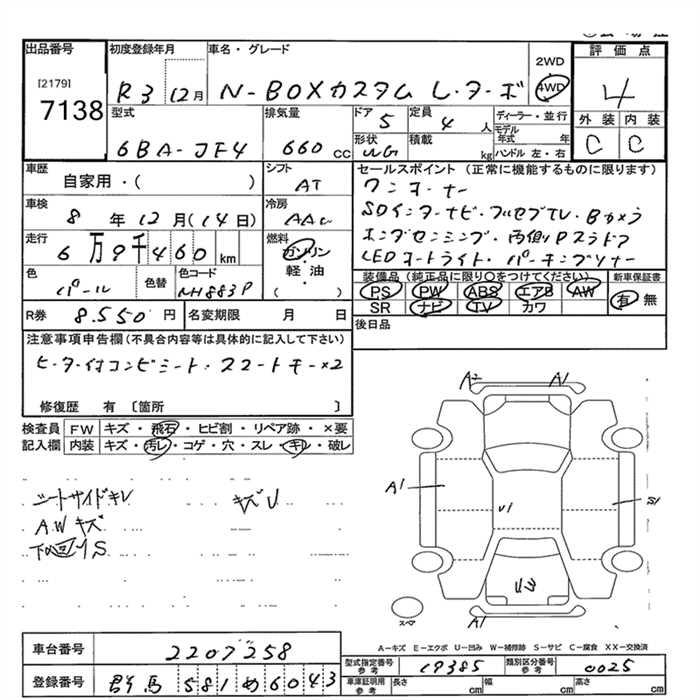 出品番号 初度登録年月 車名・グレード
[2179]
7138
R3 12月 N-BOXカスタム L・ターボ
2WD
4WD
評価点
4
外装 内装
C C
型式 排気量 ドア 定員 ディーラー・並行
6BA-JF4 660cc 5 4人
形状 積載 kg
モデル年式 年
ハンドル 左・右
車歴 シフト
自家用・( ) AT
車検 冷房
8年12月(14日) AAC
走行 燃料
6万9千460km ガソリン・軽油
( )
色 色替 色コード
パール NH883P
R券 8.550円 名変期限 月 日
セールスポイント (正常に機能するものに限ります)
ワンオーナー
SDインターナビ・フルセグTV・Bカメラ
ホンダセンシング・両側Pスラドア
LEDオートライト・パーキングソナー
装備品(純正品に限り○をつけてください) 新車保証書
PS PW ABS エアB AW 有 無
SR ナビ TV カワ
後日品
注意事項申告欄(不具合内容等は具体的に記入して下さい)
ヒーター付コンビシート・スマートキー×2
修復歴 有 〔箇所 〕
検査員 FW キズ・飛石・ヒビ割・リペア跡・×要
記入欄 内装 キズ・汚レ・コゲ・穴・スレ・キレ・破レ
シートサイドキレ キズU
A.Wキズ
下回りS
A2 A1
A1 U1 S1
U3
A1
スペア
A-キズ E-エクボ U-凹み W-補修跡 S-サビ C-腐食 XX-交換済
車台番号 2207258
登録番号 群馬 581 め 6043
型式指定番号 参考 19385 類別区分番号 参考 0025
車庫証明用 参考 長さ cm 幅 cm 高さ cm